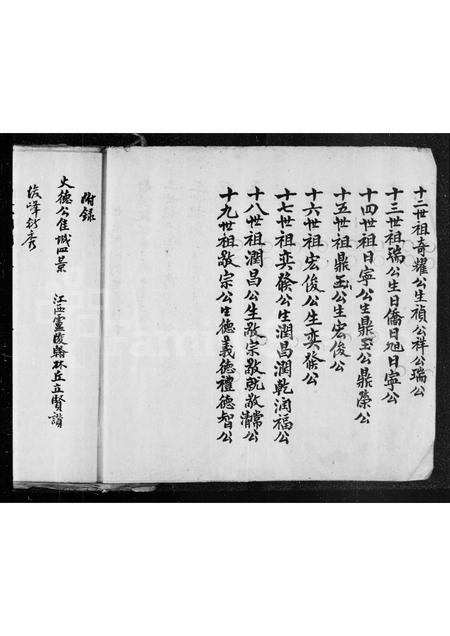 十二世祖奇耀公生禎公祥公瑞公
十三世祖瑞公生日僑日旭日寧公
十四世祖日寧公生鼎玉公鼎榮公
十五世祖鼎玉公生宏俊公
十六世祖宏俊公生奕發公
十七世祖奕發公生潤昌潤乾润福公
十八世祖潤昌公生敬宗敬就敬常公
十九世祖敬宗公生德義德禮德智公
附錄
大德公隹城四景 江西靈陵翰林丘立賢讚
峰